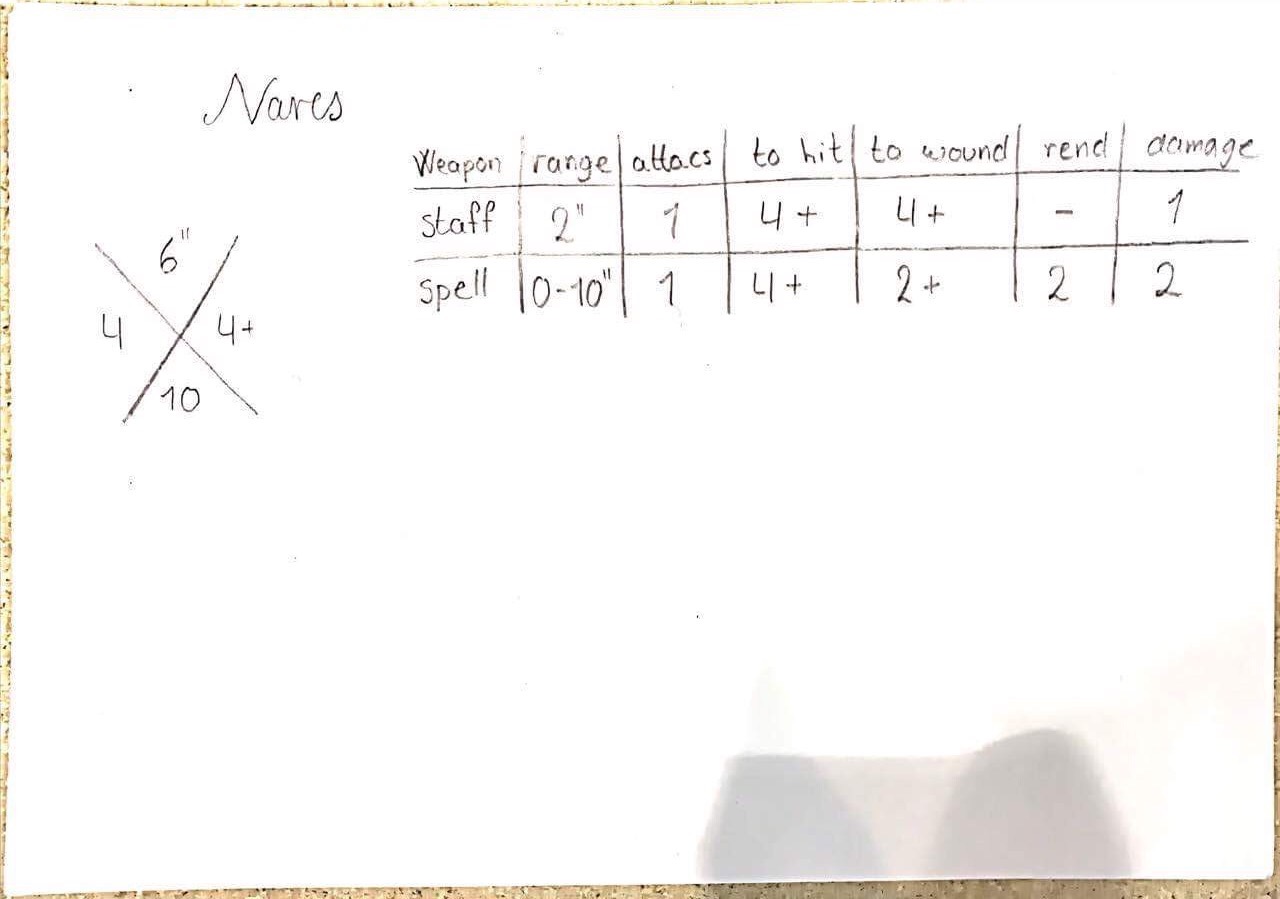 Nares
Weapon range attacs to hit to wound rend damage
staff 2" 1 4+ 4+ - 1
spell 0-10" 1 4+ 2+ 2 2
6"
4 4+
10